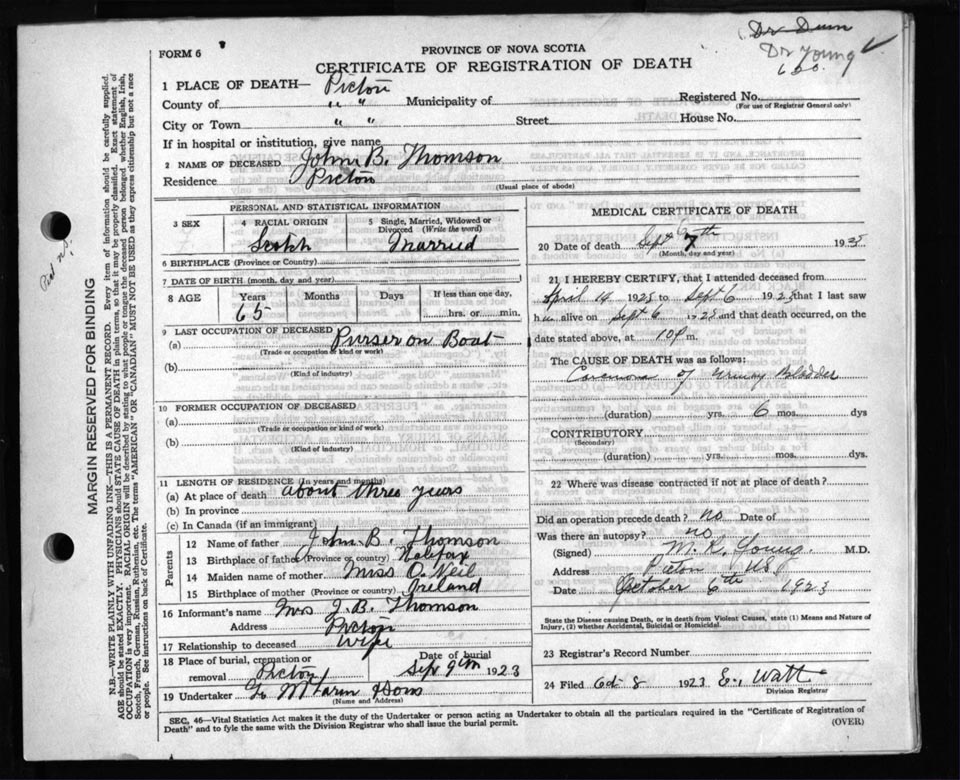 Dr Dunn
Dr Young
FORM 6
PROVINCE OF NOVA SCOTIA
CERTIFICATE OF REGISTRATION OF DEATH
1 PLACE OF DEATH— Pictou
County of " " Municipality of Registered No.
(For use of Registrar General only)
City or Town " " Street House No.
If in hospital or institution, give name
2 NAME OF DECEASED John B. Thomson
Residence Pictou
(Usual place of abode)
PERSONAL AND STATISTICAL INFORMATION
3 SEX 4 RACIAL ORIGIN 5 Single, Married, Widowed or Divorced (Write the word)
Scotch Married
6 BIRTHPLACE (Province or Country)
7 DATE OF BIRTH (month, day and year)
8 AGE Years Months Days If less than one day,
65 hrs. or min.
9 LAST OCCUPATION OF DECEASED
(a) Purser on Boat
(Trade or occupation or kind of work)
(b)
(Kind of industry)
10 FORMER OCCUPATION OF DECEASED
(a)
(Trade or occupation or kind of work)
(b)
(Kind of industry)
11 LENGTH OF RESIDENCE (In years and months)
(a) At place of death about three years
(b) In province
(c) In Canada (if an immigrant)
Parents
12 Name of father John B. Thomson
13 Birthplace of father (Province or country) Halifax
14 Maiden name of mother Miss O. Neil
15 Birthplace of mother (Province or country) Ireland
16 Informant's name Mrs J. B. Thomson
Address Pictou
17 Relationship to deceased Wife
18 Place of burial, cremation or removal Pictou Date of burial Sep 9th 1923
19 Undertaker & Sons
(Name and Address)
MEDICAL CERTIFICATE OF DEATH
20 Date of death Sept 7th 1923
(Month, day and year)
21 I HEREBY CERTIFY, that I attended deceased from
April 14 1923 to Sept 6 1923 that I last saw
him alive on Sept 6 1923 and that death occurred, on
date stated above, at 10 P m.
The CAUSE OF DEATH was as follows:
Carcinoma of Urinary Bladder
(duration) yrs. 6 mos. dys
CONTRIBUTORY
(Secondary)
(duration) yrs. mos. dys.
22 Where was disease contracted if not at place of death?
Did an operation precede death? no Date of
Was there an autopsy? no
(Signed) Young M.D.
Address Pictou N.S.
Date October 6th 1923
State the Disease causing Death, or in death from Violent Causes, state (1) Means and Nature of
Injury, (2) whether Accidental, Suicidal or Homicidal.
23 Registrar's Record Number
24 Filed Oct 8 1923 E. Watt
Division Registrar
SEC. 46—Vital Statistics Act makes it the duty of the Undertaker or person acting as Undertaker to obtain all the particulars required in the "Certificate of Registration of
Death" and to fyle the same with the Division Registrar who shall issue the burial permit.
(OVER)
MARGIN RESERVED FOR BINDING
N.B.—WRITE PLAINLY WITH UNFADING INK—THIS IS A PERMANENT RECORD. Every item of information should be carefully supplied.
AGE should be stated EXACTLY. PHYSICIANS should STATE CAUSE OF DEATH in plain terms, so that it may be properly classified. Exact statement of
OCCUPATION is very important. RACIAL ORIGIN will be described by stating to what people or tongue the deceased person belonged, whether English, Irish,
Scotch, French, German, Russian, Ruthenian, etc. The terms "AMERICAN" OR "CANADIAN" MUST NOT BE USED as they express citizenship but not a race
or people. See instructions on back of Certificate.